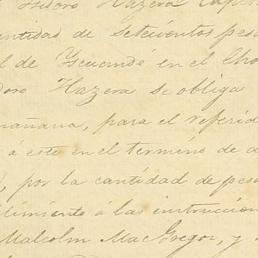 Isidoro Hazera Capi
cantidad de setecientos pes
l de Yscuandé en el Cho
doro Hazera se obliga
mañana, para el referid
á este en el termino de d
, por la cantidad de pes
limiento á las instruccion
Malcolm Mac Gregor, y